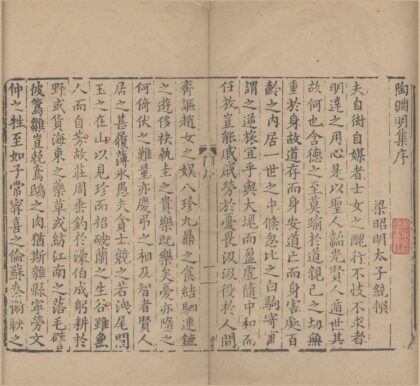 陶淵明集序
梁昭明太子統撰
夫自衒自媒者士女之醜行不忮不求者
明達之用心是以聖人韜光賢人遁世其
故何也含德之至莫踰於道親己之切無
重於身故道存而身安道亡而身害處百
齡之内居一世之中倏忽比之白駒寄寓
謂之逆旅宜乎與大塊而盈虛隨中和而
任放豈能戚戚勞於憂畏汲汲役於人間
齊謳趙女之娛八珍九鼎之食結駟連鑣
之遊侈袂執圭之貴樂旣樂矣憂亦隨之
何倚伏之難量亦慶弔之相及智者賢人
居之甚履薄氷愚夫貪士競之若洩尾閭
玉之在山以見珍而招破蘭之生谷雖無
人而自芳故莊周垂釣於濠伯成躬耕於
野或貨海東之藥草或紡江南之落毛譬
彼鴛雛豈競鳶鴟之肉猶斯雜縣寧勞文
仲之牲至如子常甯喜之倫蘇秦衛鞅之